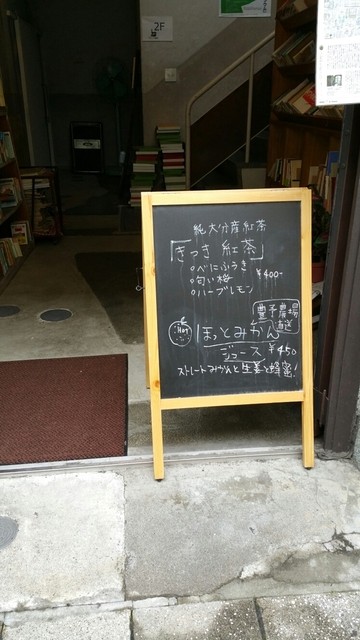 2F
純大分産紅茶
「きつき 紅茶」
○べにふうき
○匂い桜 ¥400-
○ハーブレモン
豊予農場
直送
Hot
ほっとみかん
ジュース ¥450
ストレートみかんと生姜と蜂蜜!